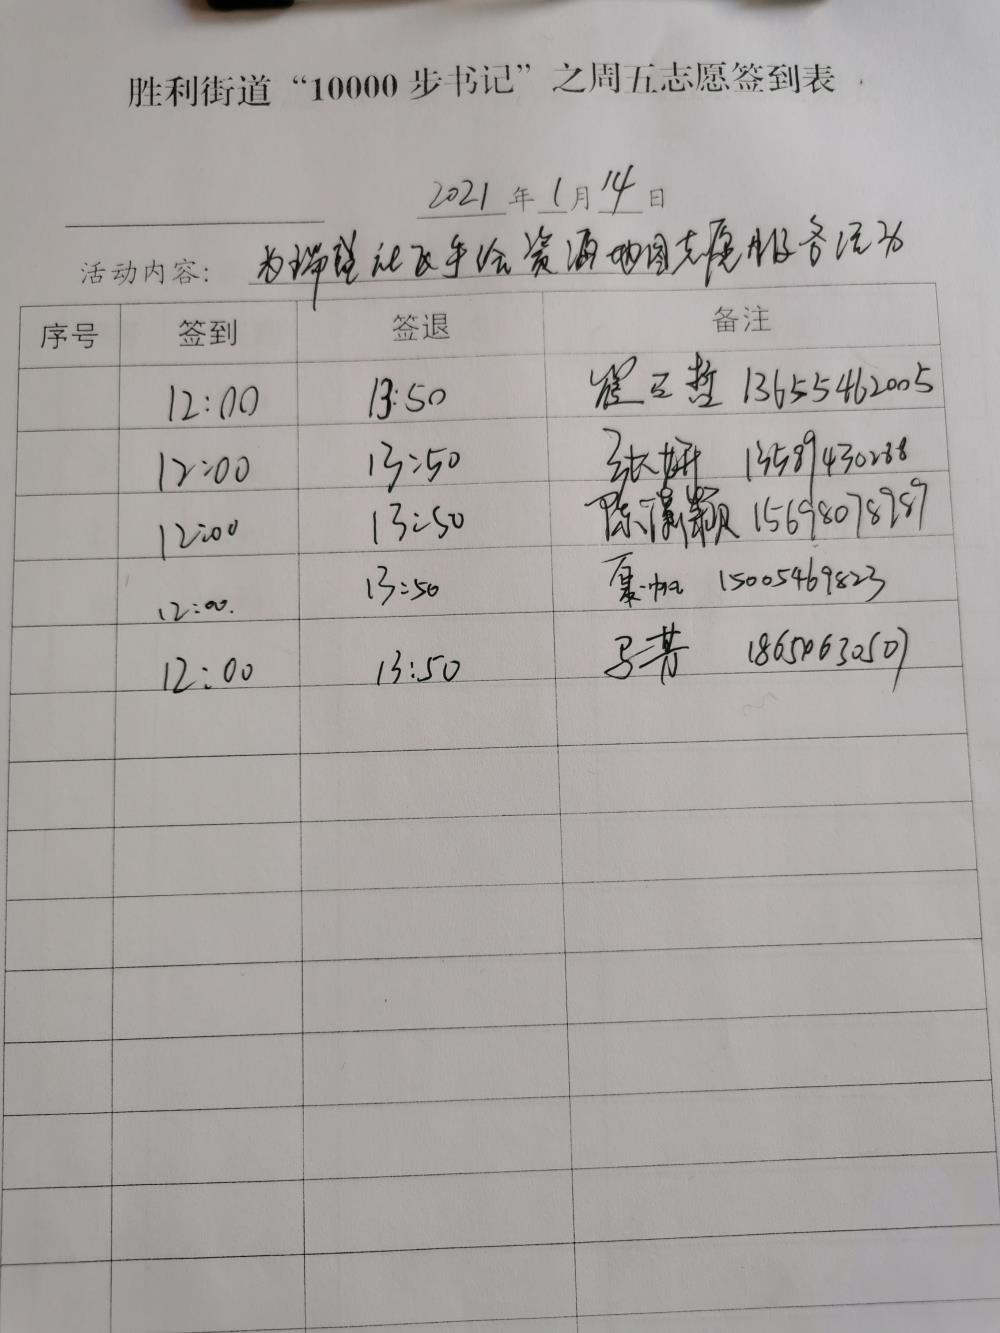 胜利街道“10000步书记”之周五志愿签到表
2021年1月14日
活动内容: 为瑞璟社区手绘资源地图志愿服务活动
序号 签到 签退 备注
12:00 13:50 13655462005
12:00 13:50 张妍 13589430288
12:00 13:50 陈潇颖 15698078987
12:00. 13:50 夏帆 15005469823
12:00 13:50 马菁 18650630507